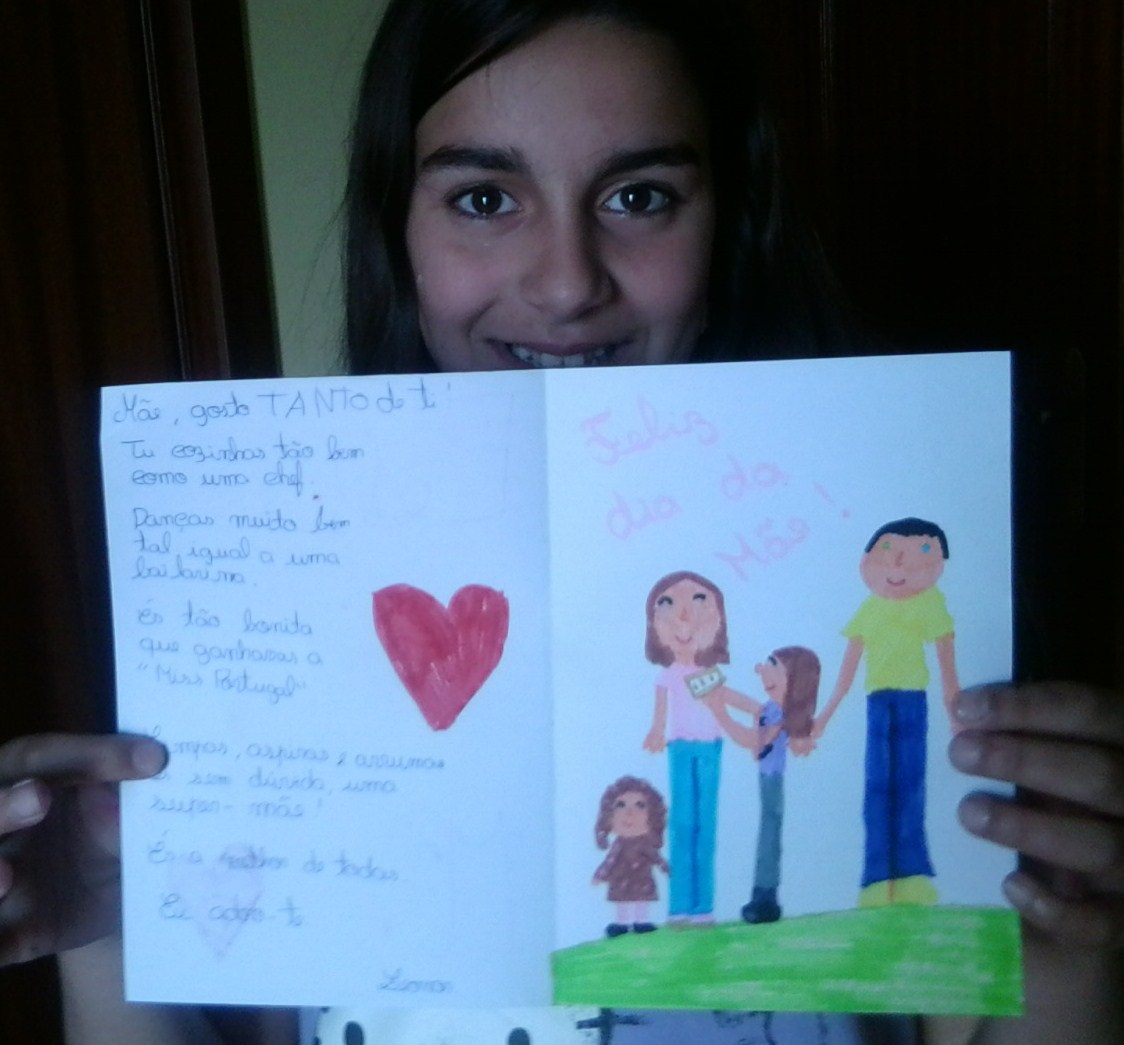 Mãe, gosto TANTO de ti!
Tu cozinhas tão bem
como uma chef.
Danças muito bem
tal igual a uma
bailarina.
És tão bonita
que ganhavas a
"Miss Portugal"
Limpas, aspiras e arrumas
És sem dúvida, uma
super-mãe!
És a melhor de todas.
Eu adoro-te
Leonor
Feliz
dia da
Mãe!